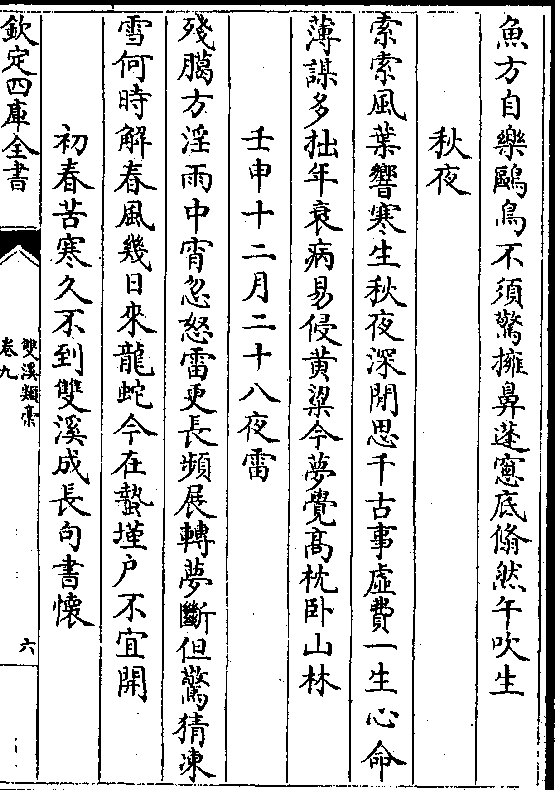 魚方自樂鷗鳥不須驚擁鼻蓬窻底翛然午吹生
秋夜
索索風葉響寒生秋夜深閒思千古事虛費一生心命
薄謀多拙年衰病易侵黄粱今夢覺髙枕卧山林
壬申十二月二十八夜雷
殘臈方淫雨中宵忽怒雷更長頻展轉夢斷但驚猜凍
雪何時解春風幾日來龍蛇今在蟄墐户不宜開
初春苦寒久不到雙溪成長句書懷
欽定四庫全書
雙溪類稾
卷九
六